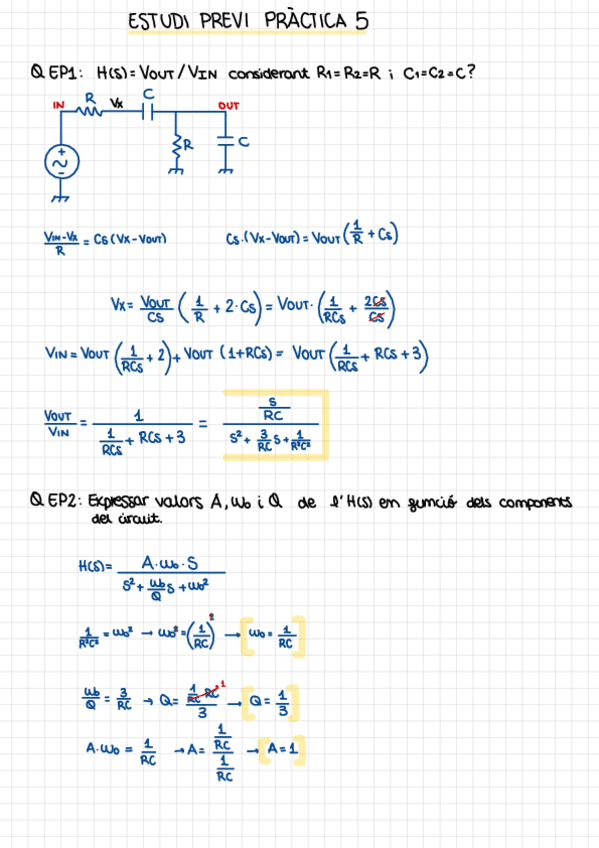 ESTUDI PREVI PRÀCTICA 5
QEP1: H(S)=VOUT/VIN considerant R1=R2=R i C1=C2=C?
IN R Vx C OUT
R C
VIN-Vx/R = CS(Vx-VOUT) CS·(Vx-VOUT)=VOUT(1/R + CS)
Vx= VOUT/CS (1/R + 2·CS)= VOUT·(1/RCS + 2CS/CS)
VIN= VOUT(1/RCS + 2)+ VOUT (1+RCS) = VOUT(1/RCS + RCS + 3)
VOUT/VIN = 1/(1/RCS + RCS + 3) = (S/RC)/(S² + 3/RC S + 1/R²C²)
QEP2: Expressar valors A, ωo i Q de l'H(S) en funció dels components
del circuit.
H(S)= A·ωo·S/(S² + ωo/Q S + ωo²)
1/R²C² = ωo² → ωo² = (1/RC)² → [ωo = 1/RC]
ωo/Q = 3/RC → Q= (1/RC · RC)/3 1 → [Q = 1/3]
A·ωo = 1/RC → A= (1/RC)/(1/RC) → [A=1]